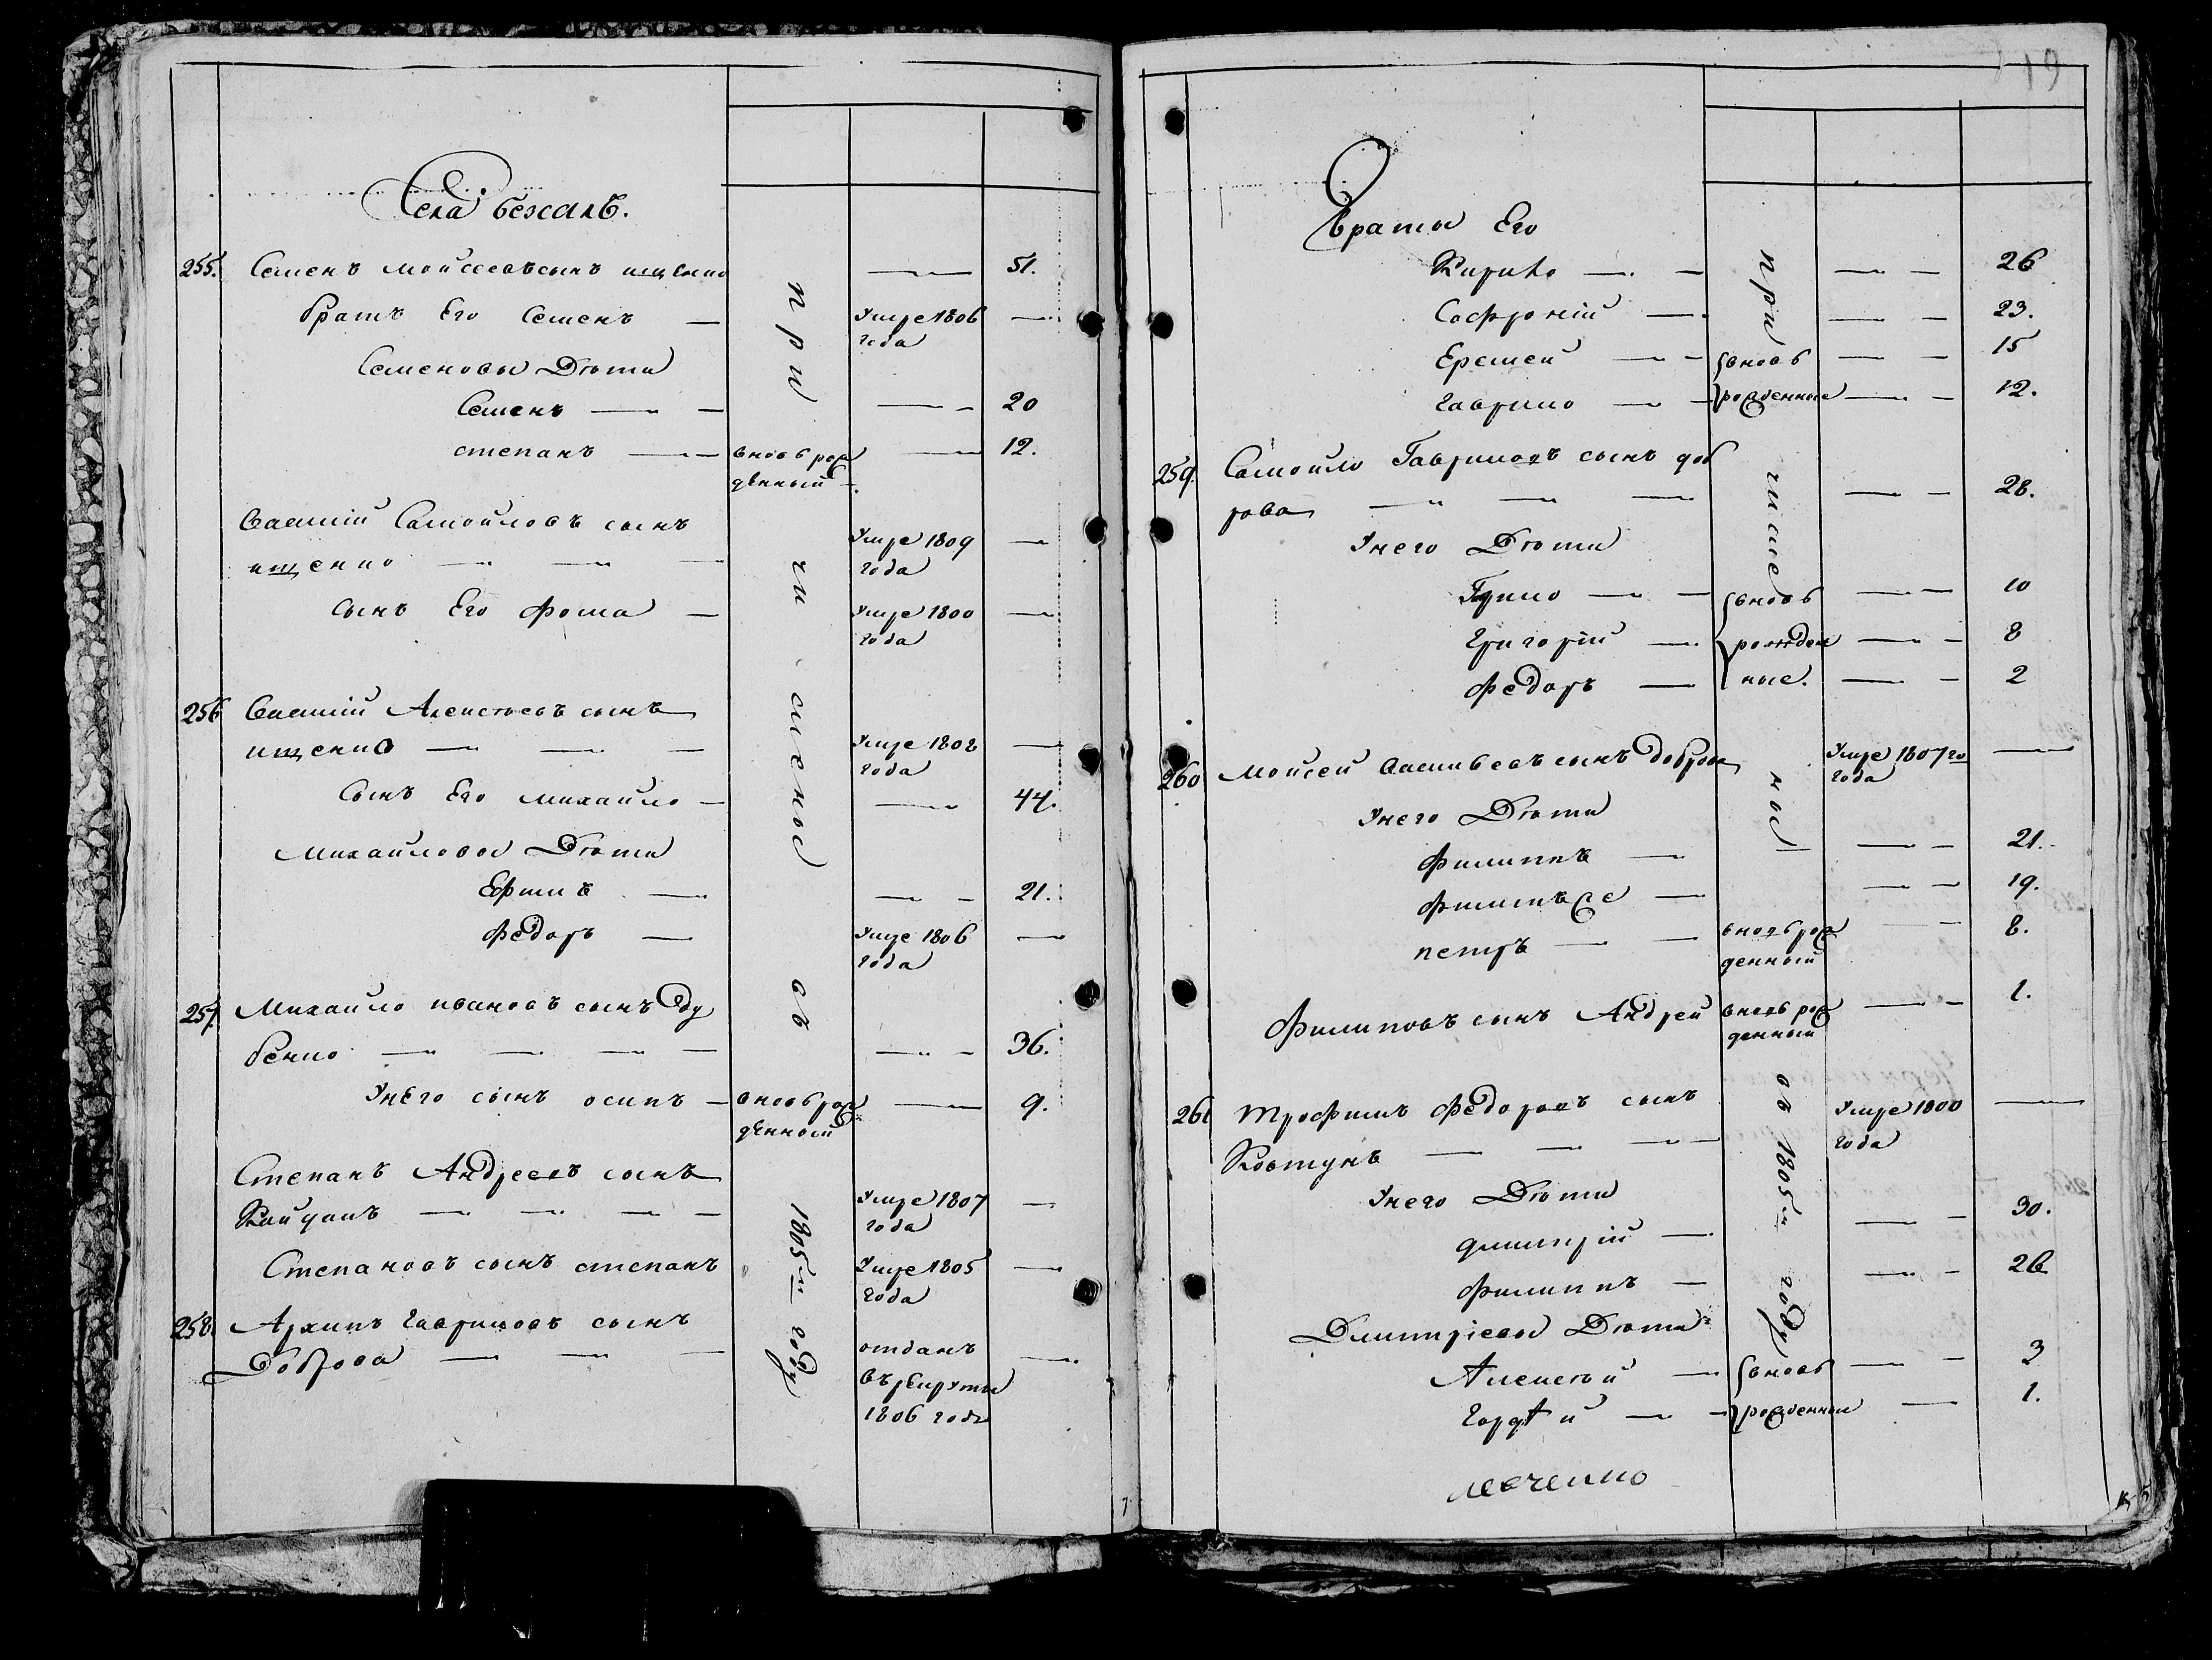 Села бехалъ.
255. Семенъ моисеевъ сынъ ищенко — 51.
братъ Его Семенъ — Умре 1806 года —
Семеновы Дѣти
Семенъ — — 20
степанъ — вновь рожденный — 12.
Василій Самойловъ сынъ
ищенко — — — Умре 1809 года —
Сынъ Его фома — Умре 1800 года —
256 Василій Алексѣевъ сынъ
ищенко — — — Умре 1802 года —
Сынъ Его михайло — — 44.
Михайловы Дѣти
Ефимъ — — 21.
Федоръ — Умре 1806 года —
257. Михайло ивановъ сынъ Ду
бенко — — — — 36.
Унего сынъ осипъ — вновь рожденный — 9.
Степанъ Андреевъ сынъ
— — — Умре 1807 года —
Степановъ сынъ степанъ Умре 1805 года —
258. Архипъ Гавриловъ сынъ
Доброва — — — отданъ въ рекруты 1806 года —
при численные въ 1805м году
19
Браты Его
Кирило — — 26
Софроній — — 23.
Еремей — вновь — 15
Гаврило — рожденные — 12.
259. Самойло Гавриловъ сынъ доб
рова — — — — 28.
Унего Дѣти
— вновь — 10
Григорій — рожден — 8
Федоръ — ные. — 2
260 Моисей Васильевъ сынъ Доброва Умре 1807го года —
Унего Дѣти
Филиппъ — — 21.
Филипъ же — — 19.
петръ — вновь рожденный — 8.
Филиповъ сынъ Андрей вновь рожденный — 1.
261 Трофимъ Федоровъ сынъ Умре 1800 —
Ковтунъ — — — года
Унего Дѣти
дмитрій — — 30.
Филиппъ — — 26
Дмитріевы Дѣти
Алексѣй — вновь — 3
Гордѣй — рожденные — 1.
численные въ 1805м году